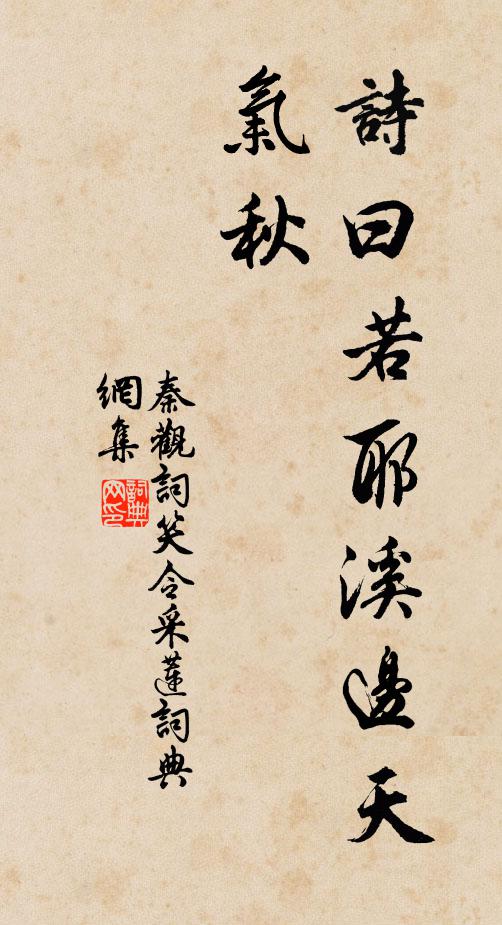 詩曰若耶溪邊天
氣秋
秦觀詞笑令采蓮詞典
網集
詞典網印